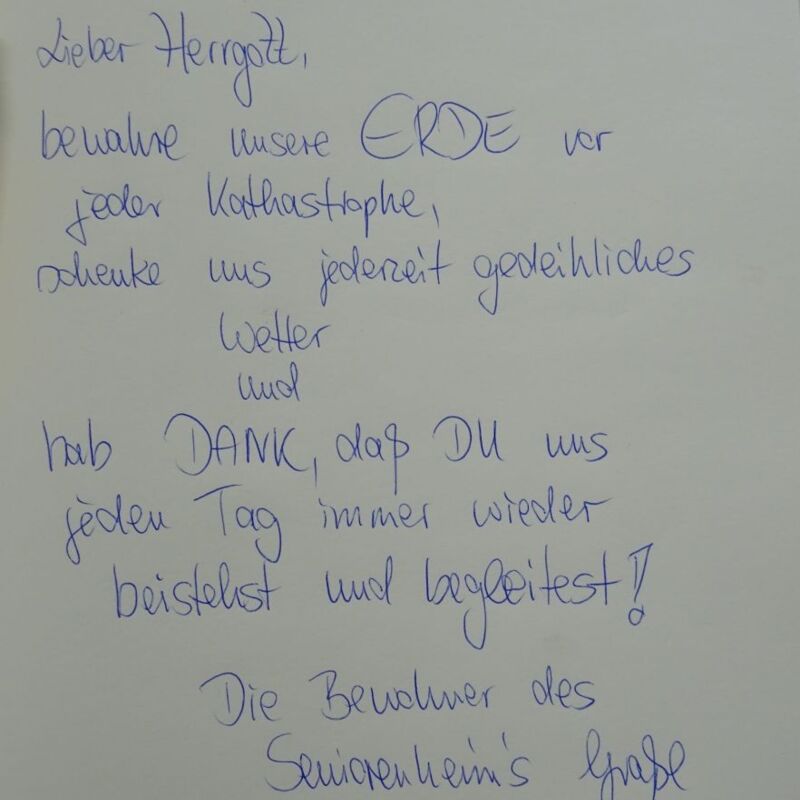 Lieber Herrgott,
bewahre unsere ERDE vor
jeder Kathastrophe,
schenke uns jederzeit gedeihliches
Wetter
und
hab DANK, daß DU uns
jeden Tag immer wieder
beistehst und begleitest!
Die Bewohner des
Seniorenheim's